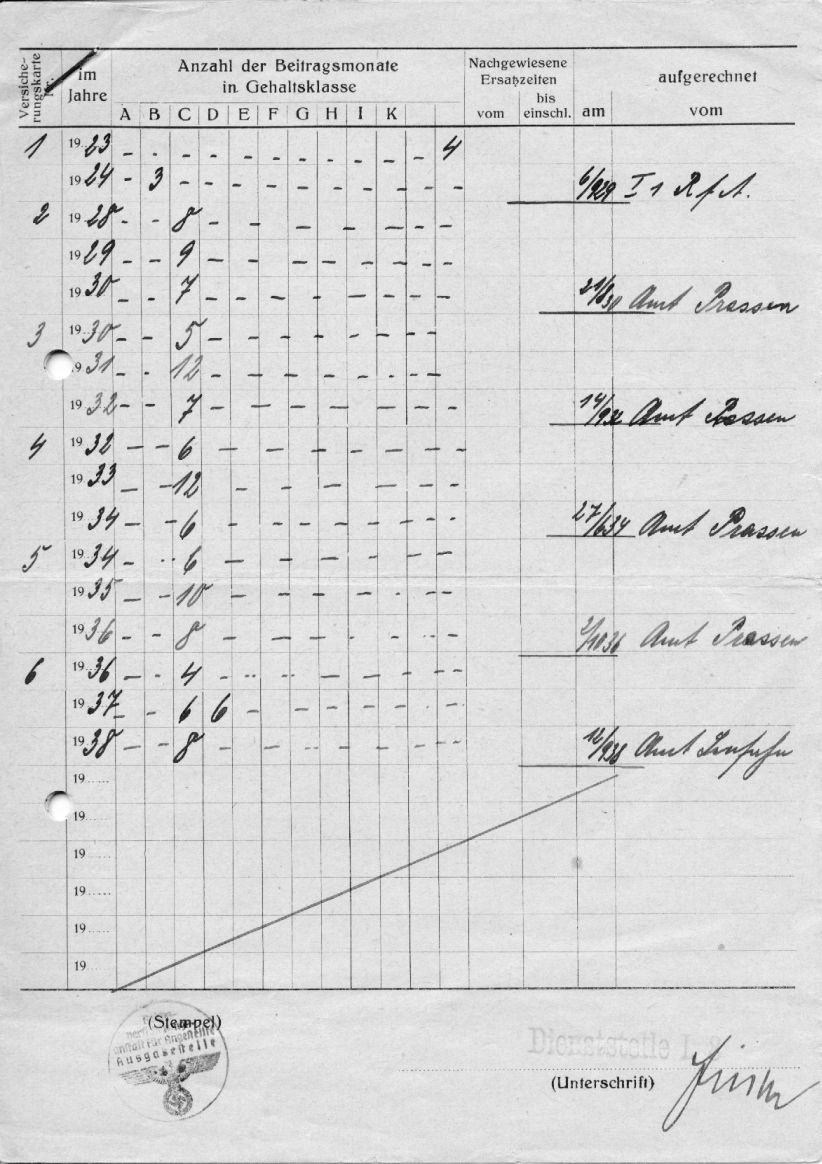 Versiche-
rungskarte
Nr.
im
Jahre
Anzahl der Beitragsmonate
in Gehaltsklasse
A B C D E F G H I K
Nachgewiesene
Ersatzeiten
vom
bis
einschl.
aufgerechnet
am
vom
1 1923 - - - - - - - - - - - 4
1924 - 3 - - - - - - - - - - 6/929 I 1 R.f.A.
2 1928 - - 8 - - - - - - -
1929 - - 9 - - - - - - -
1930 - - 7 - - - - - - - - - 21/8 30 Amt Prassen
3 1930 - - 5 - - - - - - - - -
1931 - - 12 - - - - - - - -
1932 - - 7 - - - - - - - - 14/932 Amt Prassen
4 1932 - - 6 - - - - - - - -
1933 - - 12 - - - - - - -
1934 - - 6 - - - - - - - - - 27/634 Amt Prassen
5 1934 - - 6 - - - - - - - -
1935 - - 10 - - - - - - - -
1936 - - 8 - - - - - - - - 1036 Amt Prassen
6 1936 - - 4 - - - - - - - - -
1937 - - 6 6 - - - - - - - -
1938 - - 8 - - - - - - - - - 12/938 Amt
19
19
19
19
19
19
(Stempel)
anstalt für Angestellte
Ausgabestelle
Dienststelle I
(Unterschrift)